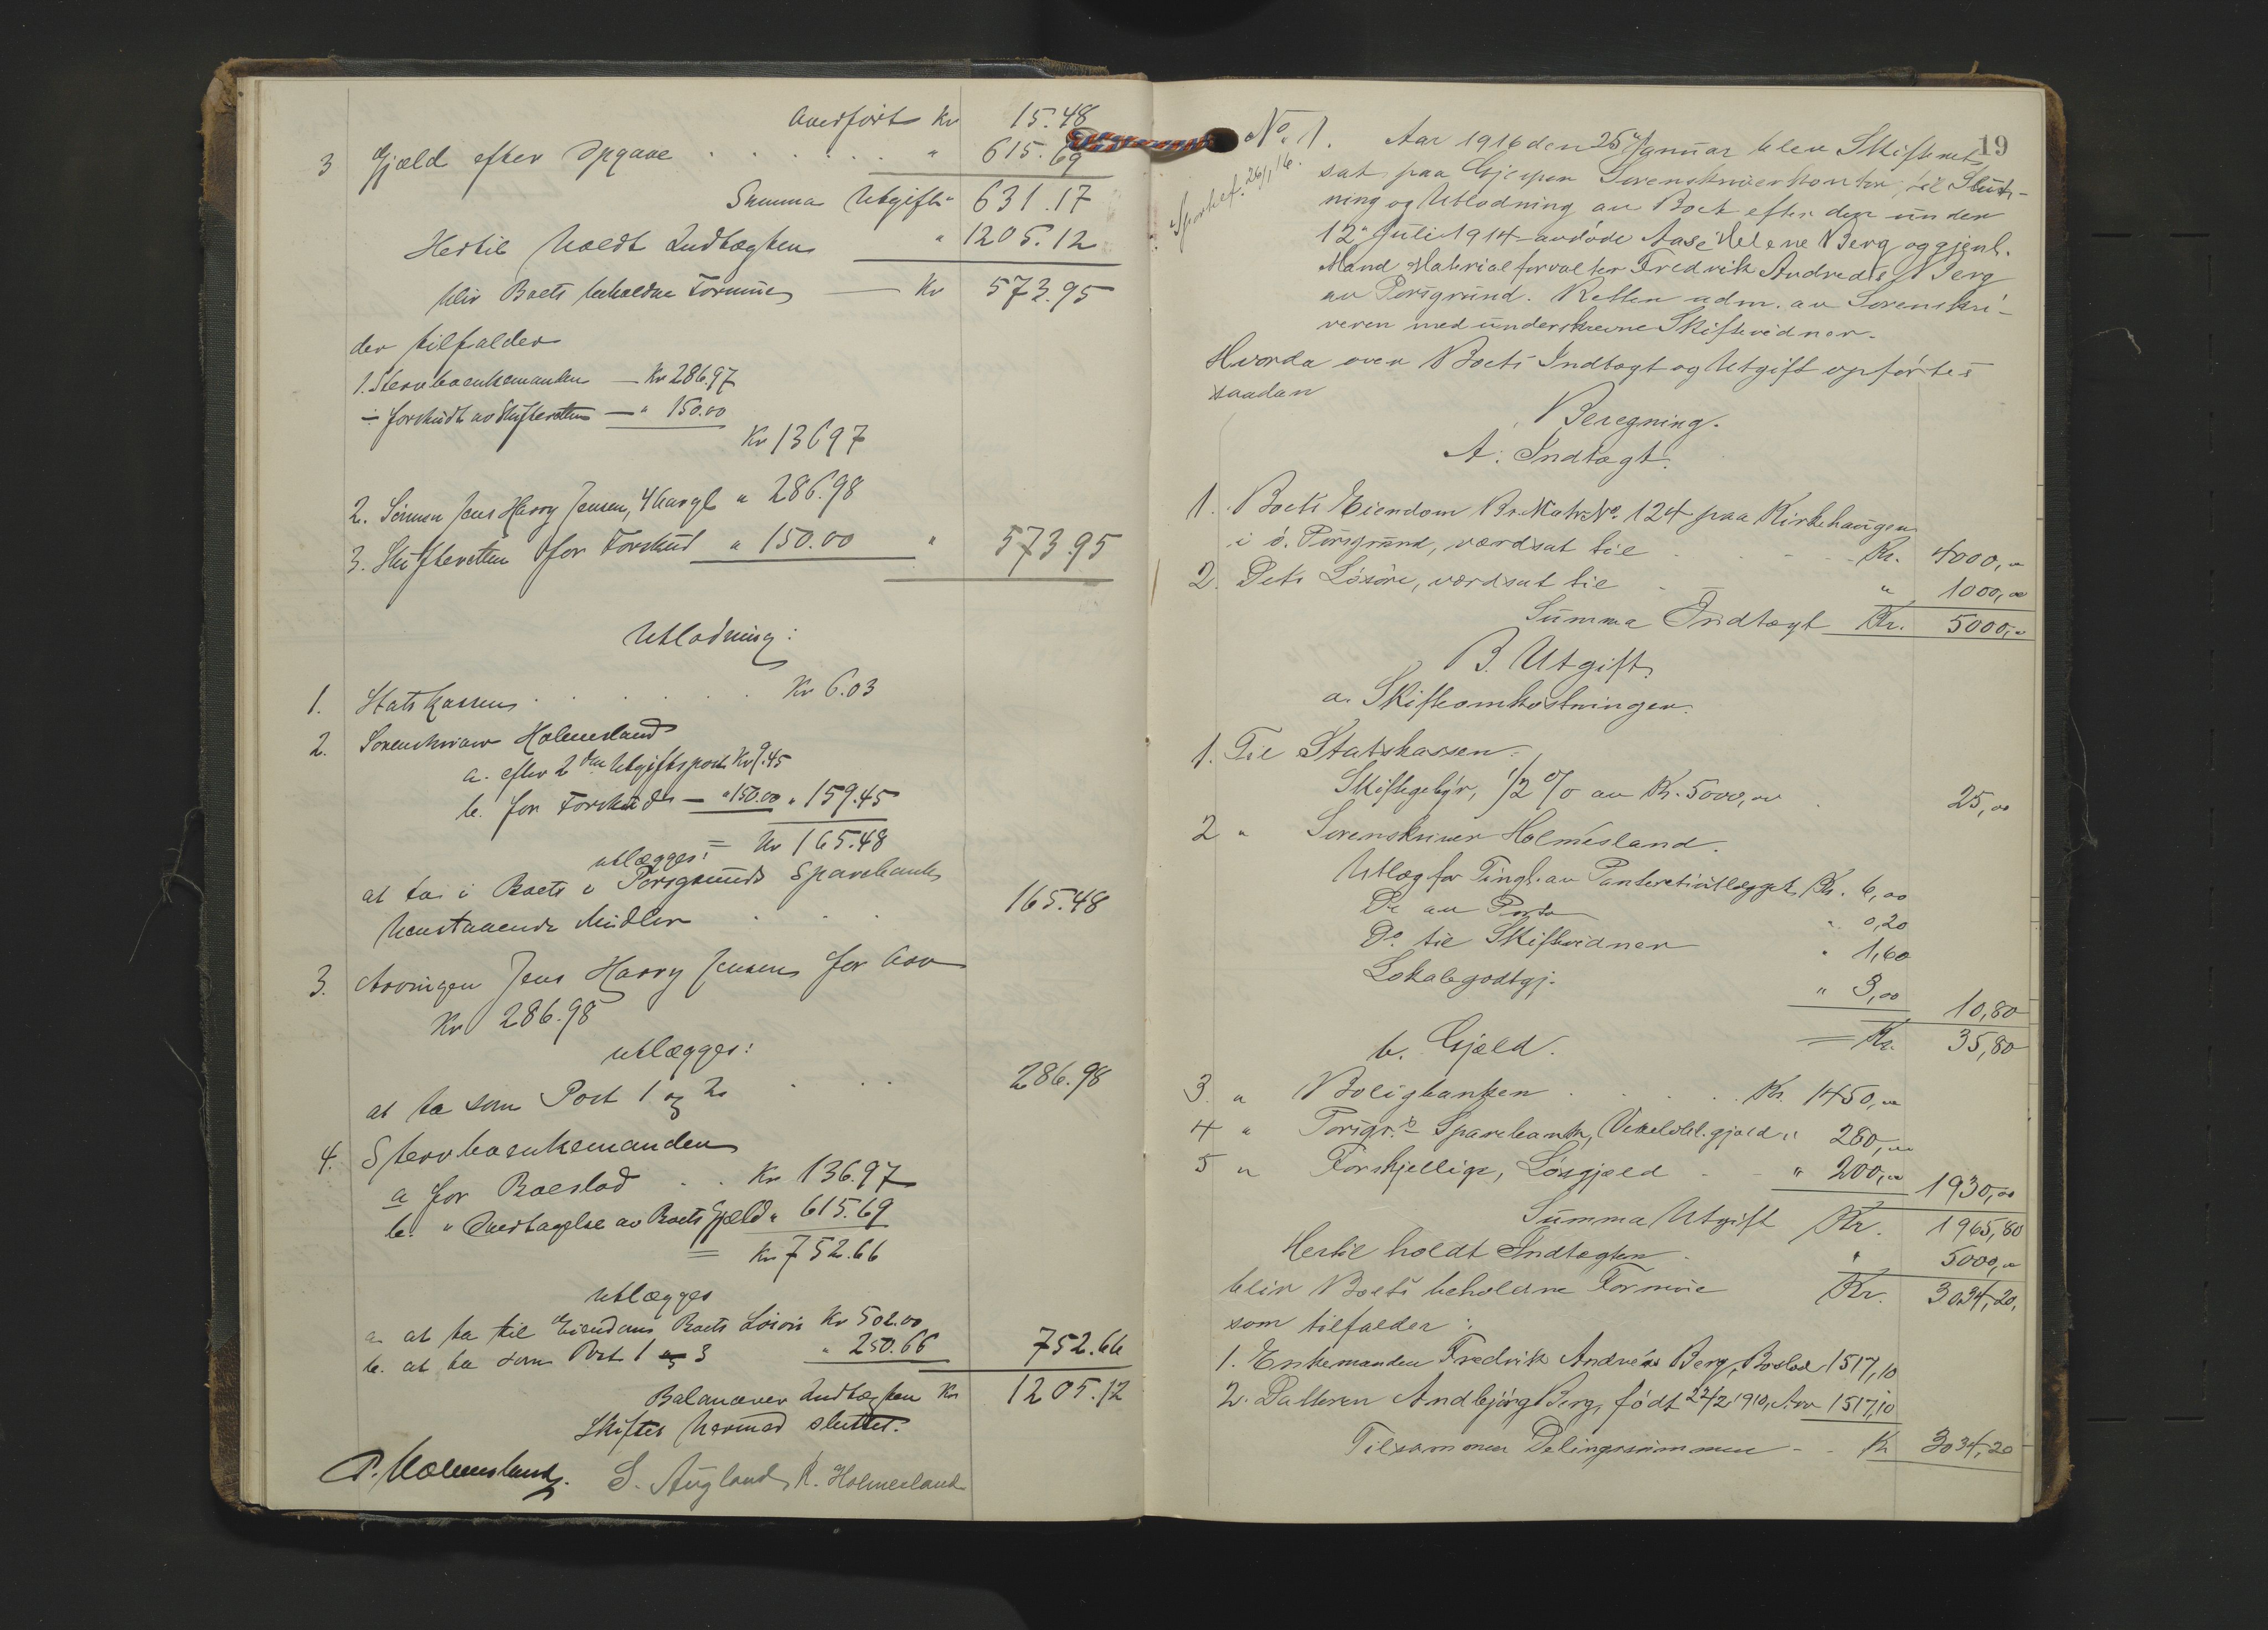 Overført Kr 15.48
3 Gjæld efter Opgave . . . . . . " 615.69
Summa Utgift " 631.17
Hertil holdt Indtægten " 1205.12
bliv Boets beholdne Formue — Kr 573.95
der tilfalder
1. Stervboenkemanden — Kr 286.97
÷ forskudt av Skifteretten — " 150.00
Kr 136 97
2. Sønnen Jens Harry Jensen, 4 aar gl " 286.98
3. Skifteretten for Forskud " 150.00 " 573.95
Utlodning:
1. Statskassen . . . . . . Kr 6.03
2. Sorenskriver Holmesland
a. efter 2den Utgiftspost Kr 9.45
b. for Forskud — " 150.00 " 159.45
= Kr 165.48
utlægges:
at ta i Boets i Porsgrunds Sparebank
henstaaende Midler . . . 165.48
3. Arvingen Jens Harry Jensen for Arv
Kr 286.98
utlægges:
at ta som Post 1 og 2 . . . 286.98
4. Stervboenkemanden
a for Boeslod . . Kr 136.97
b. " Overtagelse av Boets Gjæld " 615.69
= Kr 752.66
utlægges
a. at ta til Eiendom Boets Løsøre Kr 502.00
b. at ta som Post 1 og 3 " 250.66 752.66
Balancerer Indtægten Kr 1205.12
Skiftet hermed sluttet.
P. Holmesland. S. Augland R. Holmesland
19
No. 1. Aar 1916 den 25 Januar blev Skifteret
Sportel ef. 26/1 16.
sat paa Gjerpen Sorenskriverkontor til Slut-
ning og Utlodning av Boet efter den under
12. Juli 1914 avdøde Aase Helene Berg og gjenl.
Mand Materialforvalter Fredrik Andreas Berg
av Porsgrund. Retten adm. av Sorenskri-
veren med underskrevne Skiftevidner.
Hvorda over Boets Indtægt og Utgift opførtes
saadan
Beregning.
A. Indtægt.
1. Boets Eiendom Br. Matr. No. 124 paa Kirkehaugen
i ø. Porsgrund, værdsat til . . . Kr. 4000,00
2. Dets Løsøre, værdsat til . — " 1000,00
Summa Indtægt Kr. 5000,00
B. Utgift.
a. Skifteomkostninger.
1. Til Statskassen.
Skiftegebyr, 1/2 % av Kr. 5000,00 . 25,00
2 " Sorenskriver Holmesland.
Utlæg for Tingl. av Panteretsutlægget Kr. 6,00
Do av Porto " 0,20
Do. til Skiftevidner " 1,60
Lokalegodtgj. " 3,00 10,80
= Kr. 35,80
b. Gjæld.
3. " Boligbanken . . . . Kr. 1450,00
4 " Porsgr.ds Sparebank, Vekselobl. gjæld " 280,00
5 " Forskjellige, Løsgjæld . - " 200,00 1930,00
Summa Utgift Kr. 1965,80
Hertil holdt Indtægten . " 5000,00
bliv Boets beholdne Formue Kr. 3034,20,
som tilfalder:
1. Enkemanden Fredrik Andreas Berg, Boslod 1517,10
2. Datteren Andbjørg Berg, født 22/2 1910, Arv 1517,10
Tilsammen Delingssummen - - Kr 3034,20